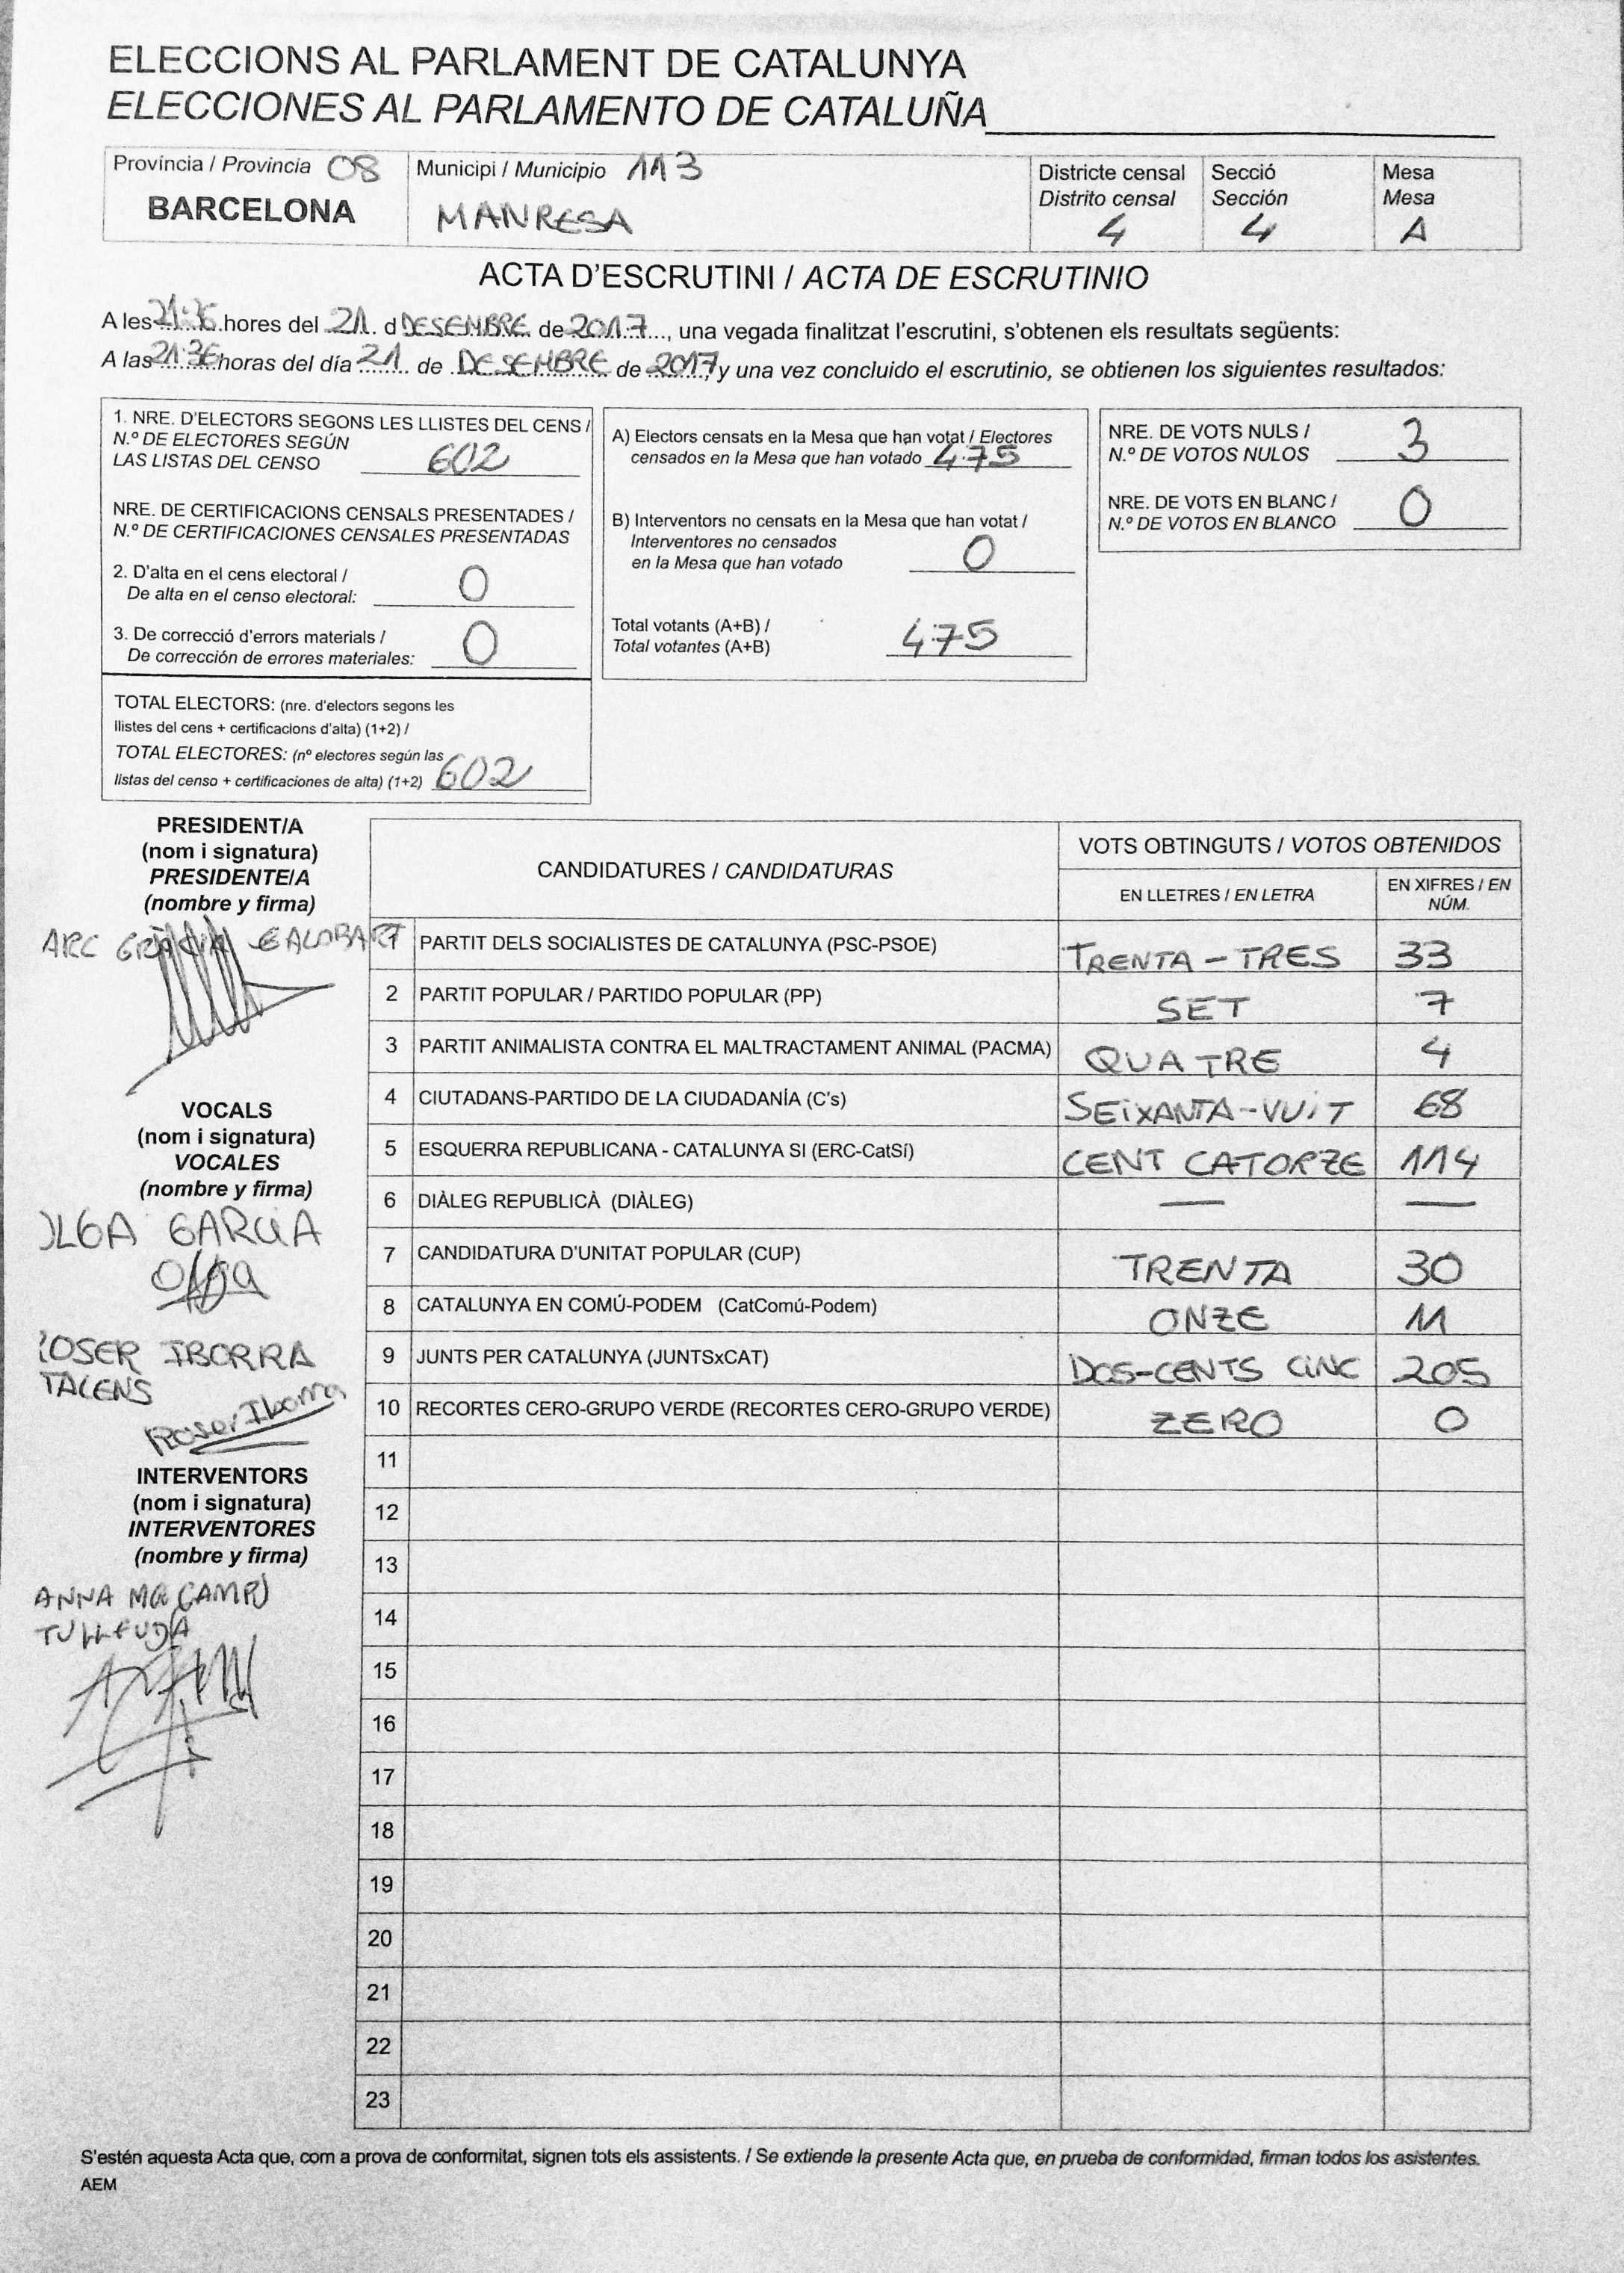 ELECCIONS AL PARLAMENT DE CATALUNYA
ELECCIONES AL PARLAMENTO DE CATALUÑA
Província / Provincia 08
BARCELONA
Municipi / Municipio 113
MANRESA
Districte censal
Distrito censal
4
Secció
Sección
4
Mesa
Mesa
A
ACTA D'ESCRUTINI / ACTA DE ESCRUTINIO
A les 21:36 hores del 21. d DESEMBRE de 2017, una vegada finalitzat l'escrutini, s'obtenen els resultats següents:
A las 21:36 horas del día 21 de DESEMBRE de 2017, y una vez concluido el escrutinio, se obtienen los siguientes resultados:
1. NRE. D'ELECTORS SEGONS LES LLISTES DEL CENS /
N.º DE ELECTORES SEGÚN
LAS LISTAS DEL CENSO 602
NRE. DE CERTIFICACIONS CENSALS PRESENTADES /
N.º DE CERTIFICACIONES CENSALES PRESENTADAS
2. D'alta en el cens electoral /
De alta en el censo electoral: 0
3. De correcció d'errors materials /
De corrección de errores materiales: 0
TOTAL ELECTORS: (nre. d'electors segons les
llistes del cens + certificacions d'alta) (1+2) /
TOTAL ELECTORES: (nº electores según las
listas del censo + certificaciones de alta) (1+2) 602
A) Electors censats en la Mesa que han votat / Electores
censados en la Mesa que han votado 475
B) Interventors no censats en la Mesa que han votat /
Interventores no censados
en la Mesa que han votado 0
Total votants (A+B) /
Total votantes (A+B) 475
NRE. DE VOTS NULS /
N.º DE VOTOS NULOS 3
NRE. DE VOTS EN BLANC /
N.º DE VOTOS EN BLANCO 0
PRESIDENT/A
(nom i signatura)
PRESIDENTE/A
(nombre y firma)
ARC GRÀCIA
VOCALS
(nom i signatura)
VOCALES
(nombre y firma)
OLGA GARCIA
Olga
ROSER IBORRA
TALENS
Roser Iborra
INTERVENTORS
(nom i signatura)
INTERVENTORES
(nombre y firma)
ANNA Mª CAMPS
CANDIDATURES / CANDIDATURAS
VOTS OBTINGUTS / VOTOS OBTENIDOS
EN LLETRES / EN LETRA
EN XIFRES / EN
NÚM.
1 PARTIT DELS SOCIALISTES DE CATALUNYA (PSC-PSOE) TRENTA-TRES 33
2 PARTIT POPULAR / PARTIDO POPULAR (PP) SET 7
3 PARTIT ANIMALISTA CONTRA EL MALTRACTAMENT ANIMAL (PACMA) QUATRE 4
4 CIUTADANS-PARTIDO DE LA CIUDADANÍA (C's) SEIXANTA-VUIT 68
5 ESQUERRA REPUBLICANA - CATALUNYA SI (ERC-CatSí) CENT CATORZE 114
6 DIÀLEG REPUBLICÀ (DIÀLEG) — —
7 CANDIDATURA D'UNITAT POPULAR (CUP) TRENTA 30
8 CATALUNYA EN COMÚ-PODEM (CatComú-Podem) ONZE 11
9 JUNTS PER CATALUNYA (JUNTSxCAT) DOS-CENTS CINC 205
10 RECORTES CERO-GRUPO VERDE (RECORTES CERO-GRUPO VERDE) ZERO 0
11
12
13
14
15
16
17
18
19
20
21
22
23
S'estén aquesta Acta que, com a prova de conformitat, signen tots els assistents. / Se extiende la presente Acta que, en prueba de conformidad, firman todos los asistentes.
AEM